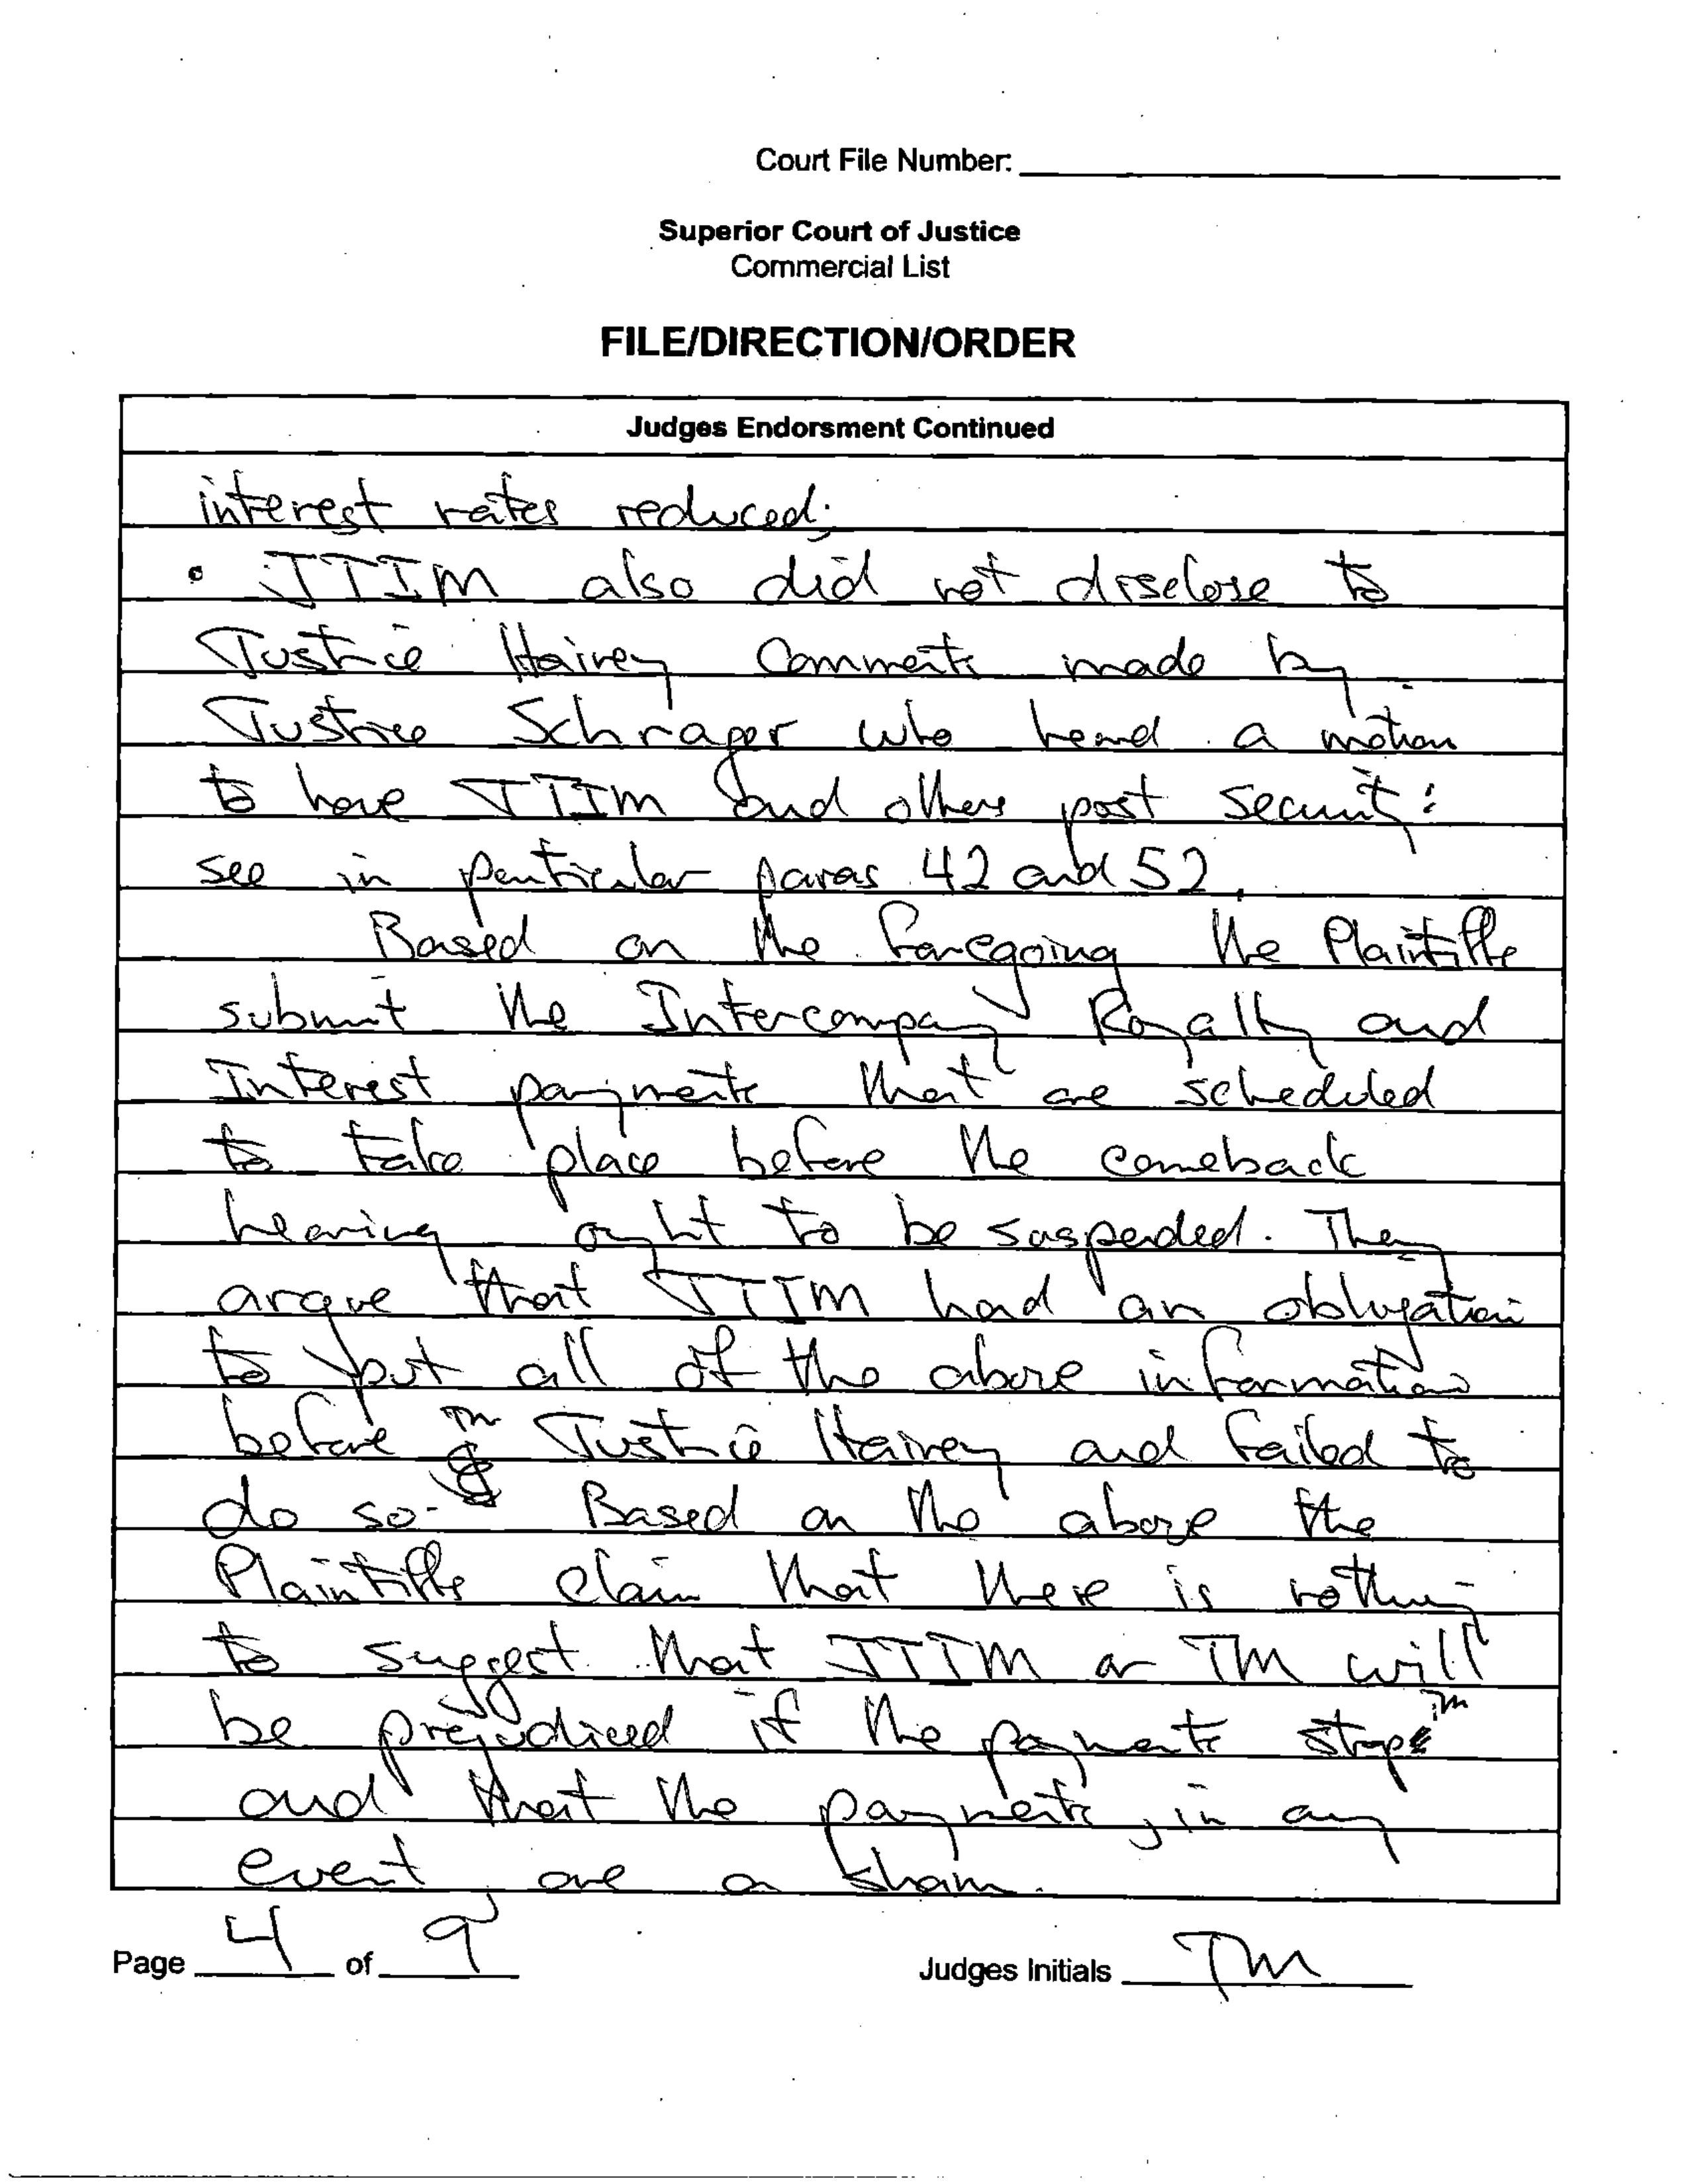 Court File Number:
Superior Court of Justice
Commercial List
FILE/DIRECTION/ORDER
Judges Endorsment Continued
interest rates reduced;
• JTIM also did not disclose to
Justice Hainey comments made by
Justice Schrager who heard a motion
to have JTIM and others post security:
see in particular paras 42 and 52.
Based on the foregoing the Plaintiffs
submit the Intercompany Royalty and
Interest payments that are scheduled
to take place before the comeback
hearing ought to be suspended. They
argue that JTIM had an obligation
to put all of the above information
before TM Justice Hainey and failed to
do so. Based on the above the
Plaintiffs claim that there is nothing
to suggest that JTIM or TM will
be prejudiced if the payments stop TM
and that the payments, in any
event, are a sham.
Page 4 of 9
Judges Initials TM